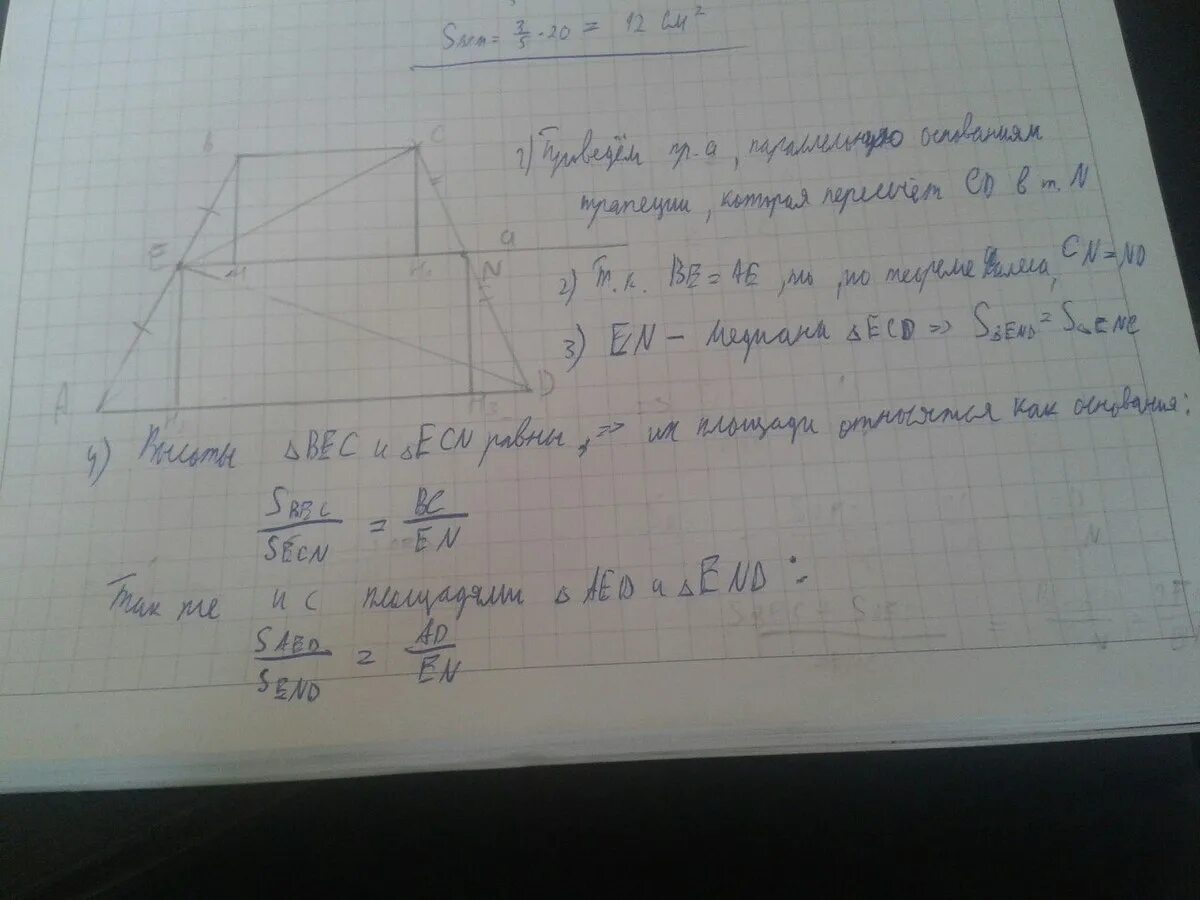 = 3/5 · 20 = 12 см²
B C
E H H₁ a N
A H D
1) Проведём пр. a, параллельную основаниям
трапеции, которая пересечёт CD в т. N
2) Т.к. BE = AE, то, по теореме Фалеса, CN = ND
3) EN – медиана △ECD => S△END = S△ENC
4) Высоты △BEC и △ECN равны, => их площади относятся как основания:
S BEC / S ECN = BC / EN
Так же и с площадями △AED и △END:
S AED / S END = AD / EN